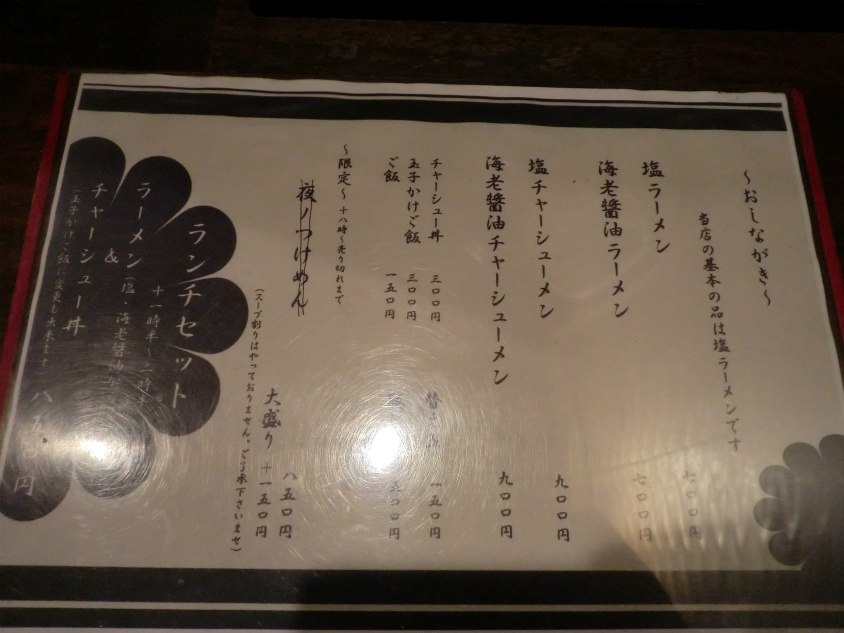 ～おしながき～
当店の基本の品は塩ラーメンです
塩ラーメン 七〇〇円
海老醤油ラーメン 七〇〇円
塩チャーシューメン 九〇〇円
海老醤油チャーシューメン 九〇〇円
チャーシュー丼 三〇〇円
玉子かけご飯 三〇〇円
ご飯 一五〇円
替 一五〇円
〇〇円
～限定～ 十八時～売り切れまで
夜ノつけめん 八五〇円
大盛り +一五〇円
(スープ割りはやっておりません。ご了承下さいませ)
ランチセット
十一時半～
ラーメン 塩・海老醤油
&
チャーシュー丼
玉子かけご飯に変更も出来ます
八五〇円